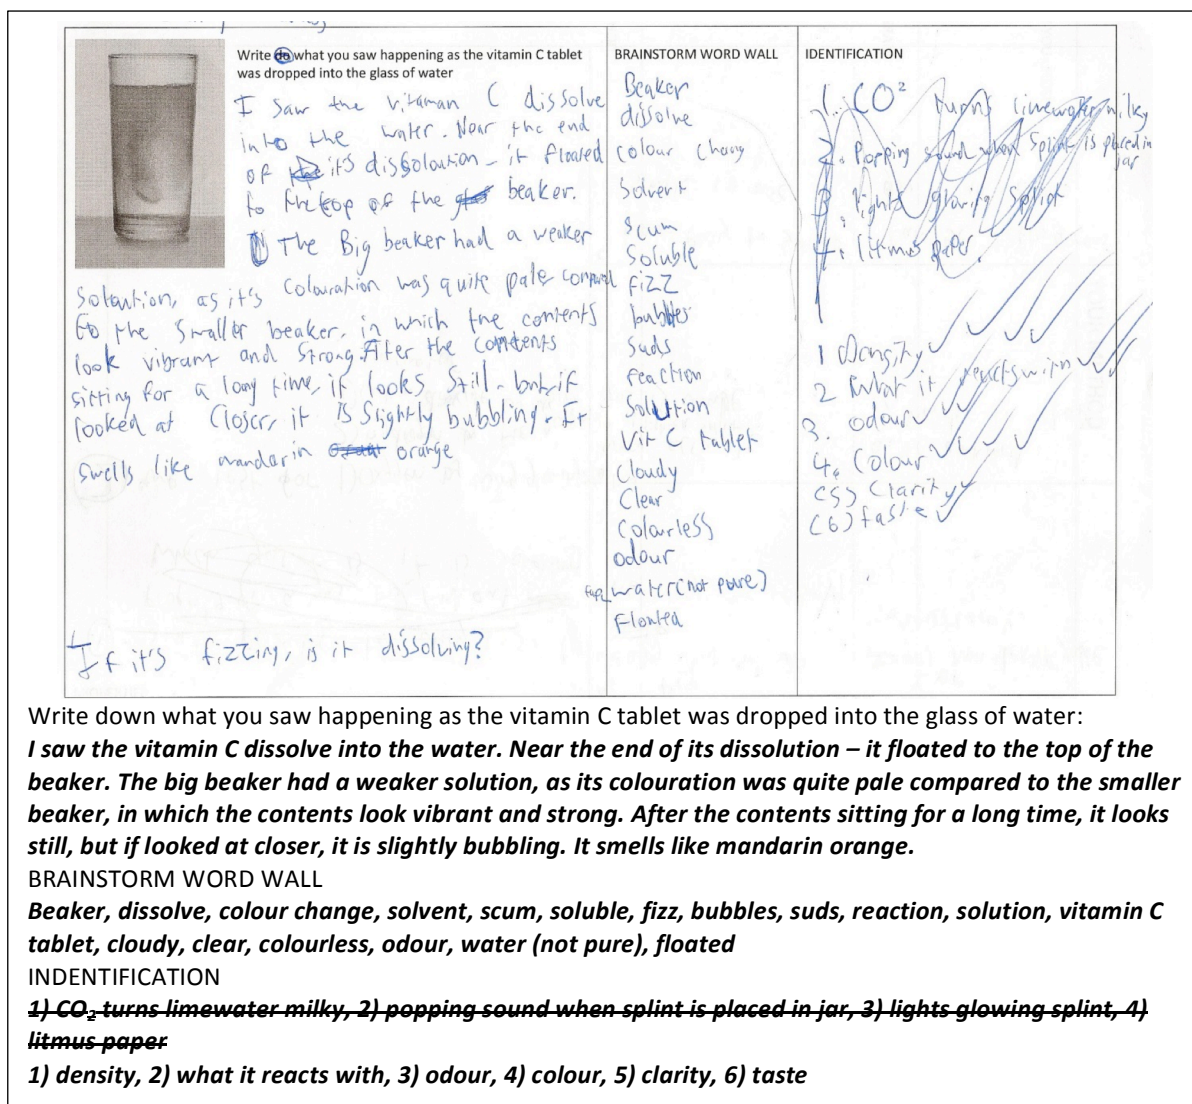 Write do what you saw happening as the vitamin C tablet
was dropped into the glass of water
I saw the vitaman C dissolve
into the water. Near the end
of it's dissoloution - it floated
to the top of the beaker.
The Big beaker had a weaker
Soloution, as it's colouration was quite pale compared
to the smaller beaker, in which the contents
look vibrant and strong. After the contents
sitting for a long time, it looks still - but if
looked at closer, it is slightly bubbling. It
smells like mandarin orange
If it's fizzing, is it dissolving?
BRAINSTORM WORD WALL
Beaker
dissolve
colour chang
Solvent
Scum
Soluble
fizz
bubbles
Suds
reaction
Solution
Vit C tablet
Cloudy
Clear
Colourless
odour
water (not pure)
Floated
IDENTIFICATION
1. CO² turns limewater milky
2. Popping sound when splint is placed in
jar
3. lights glowing splint
4. litmus paper.
1 Density
2 What it reacts with
3. odour
4. Colour
(5) Clarity
(6) taste
Write down what you saw happening as the vitamin C tablet was dropped into the glass of water:
I saw the vitamin C dissolve into the water. Near the end of its dissolution – it floated to the top of the
beaker. The big beaker had a weaker solution, as its colouration was quite pale compared to the smaller
beaker, in which the contents look vibrant and strong. After the contents sitting for a long time, it looks
still, but if looked at closer, it is slightly bubbling. It smells like mandarin orange.
BRAINSTORM WORD WALL
Beaker, dissolve, colour change, solvent, scum, soluble, fizz, bubbles, suds, reaction, solution, vitamin C
tablet, cloudy, clear, colourless, odour, water (not pure), floated
INDENTIFICATION
1) CO₂ turns limewater milky, 2) popping sound when splint is placed in jar, 3) lights glowing splint, 4)
litmus paper
1) density, 2) what it reacts with, 3) odour, 4) colour, 5) clarity, 6) taste